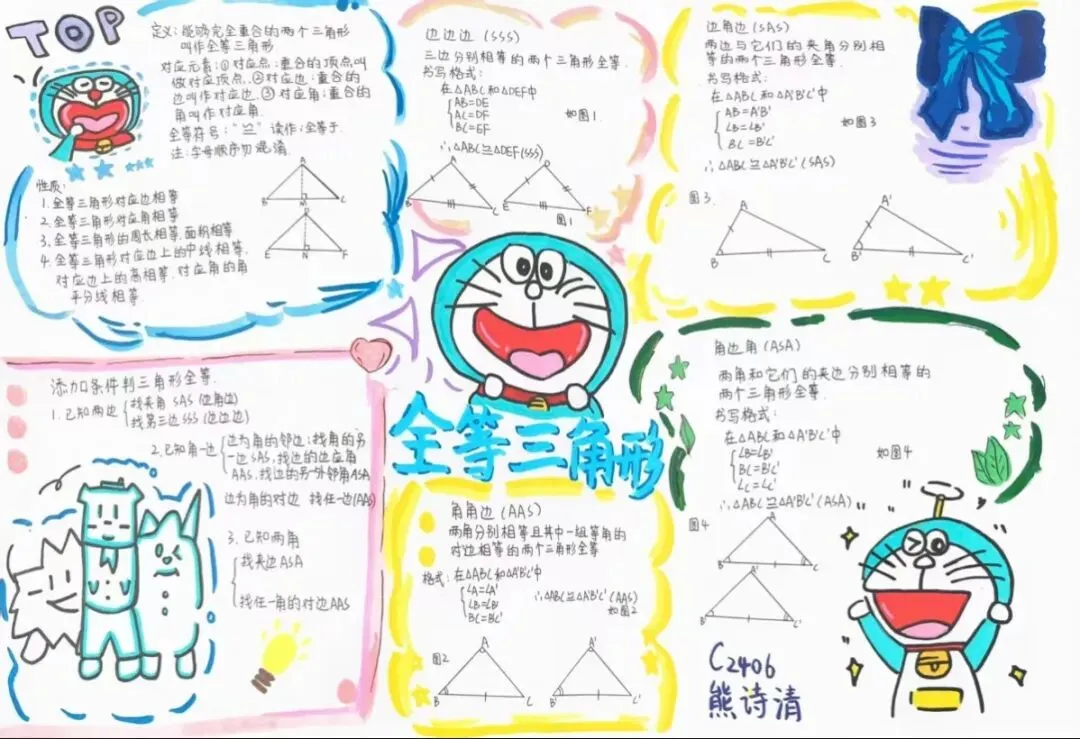 TOP
定义:能够完全重合的两个三角形
叫作全等三角形
对应元素:①对应点:重合的顶点叫
做对应顶点.②对应边:重合的
边叫作对应边.③对应角:重合的
角叫作对应角.
全等符号:"≌"读作:全等于.
注:字母顺序勿混淆.
性质:
1.全等三角形对应边相等
2.全等三角形对应角相等
3.全等三角形的周长相等.面积相等
4.全等三角形对应边上的中线相等.
对应边上的高相等.对应角的角
平分线相等.
A
B M C
D
E N F
边边边(SSS)
三边分别相等的两个三角形全等.
书写格式:
在△ABC和△DEF中
AB=DE
AC=DF
BC=EF
如图1.
∴△ABC≌△DEF(SSS)
A D
B C E F
图1
边角边(SAS)
两边与它们的夹角分别相
等的两个三角形全等.
书写格式:
在△ABC和△A'B'C'中
AB=A'B'
∠B=∠B'
BC=B'C'
如图3
∴△ABC≌△A'B'C'(SAS)
图3.
A A'
B C B' C'
全等三角形
添加条件判三角形全等.
1.已知两边 找夹角 SAS(边角边)
找第三边SSS(边边边)
2.已知角一边 边为角的邻边:找角的另
一边SAS.找边的边应角
AAS.找边的另外邻角ASA
边为角的对边 找任一边(AAS)
3.已知两角
找夹边ASA
找任一角的对边AAS
角角边(AAS)
两角分别相等且其中一组等角的
对边相等的两个三角形全等
格式:在△ABC和△A'B'C'中
∠A=∠A'
∠B=∠B'
BC=B'C'
∴△ABC≌△A'B'C'(AAS)
如图2
图2
A A'
B C B' C'
角边角(ASA)
两角和它们的夹边分别相等的
两个三角形全等.
书写格式:
在△ABC和△A'B'C'中
∠B=∠B'
BC=B'C'
∠C=∠C'
如图4
∴△ABC≌△A'B'C'(ASA)
图4
A
B C
A'
B' C'
C2406
熊诗清